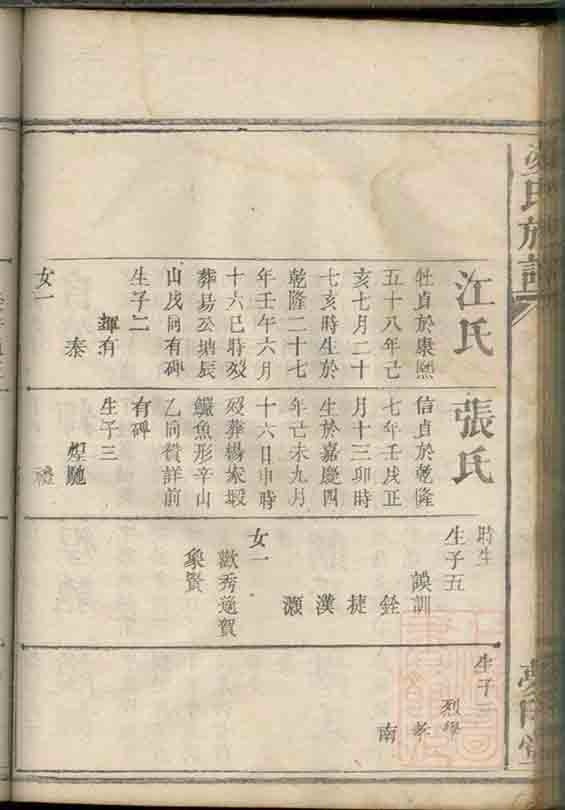 氏族譜
江氏
牡貞於康熙
五十八年己
亥七月二十
七亥時生於
乾隆二十七
年壬午六月
十六巳時歿
葬易公塘辰
山戌向有碑
生子二
輝有
泰
女一
張氏
信貞於乾隆
七年壬戌正
月十三卯時
生於嘉慶四
年己未九月
十六日申時
歿葬楊家塅
魚形辛山
乙向賛詳前
有碑
生子三
馳
禮
時生
生子五
謨訓
銓
捷
漢
灝
女一
歡秀適賀
象賢
生子
烈學
孝
南
堂